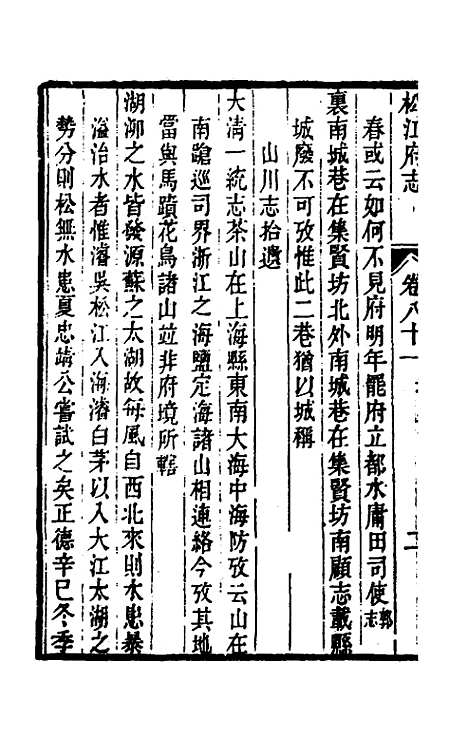 松江府志 卷八十一
春或云如何不見府明年罷府立都水庸田司使郭志
裏南城巷在集賢坊北外南城巷在集賢坊南顧志載縣
城廢不可攷惟此二巷猶以城稱
山川志拾遺
大清一統志茶山在上海縣東南大海中海防攷云山在
南蹌巡司界浙江之海鹽定海諸山相連絡今攷其地
當與馬蹟花鳥諸山並非府境所轄
湖泖之水皆發源蘇之太湖故每風自西北來則水患暴
溢治水者惟濬吳松江入海濬白茅以入大江太湖之
勢分則松無水患夏忠靖公嘗試之矣正德辛巳冬季